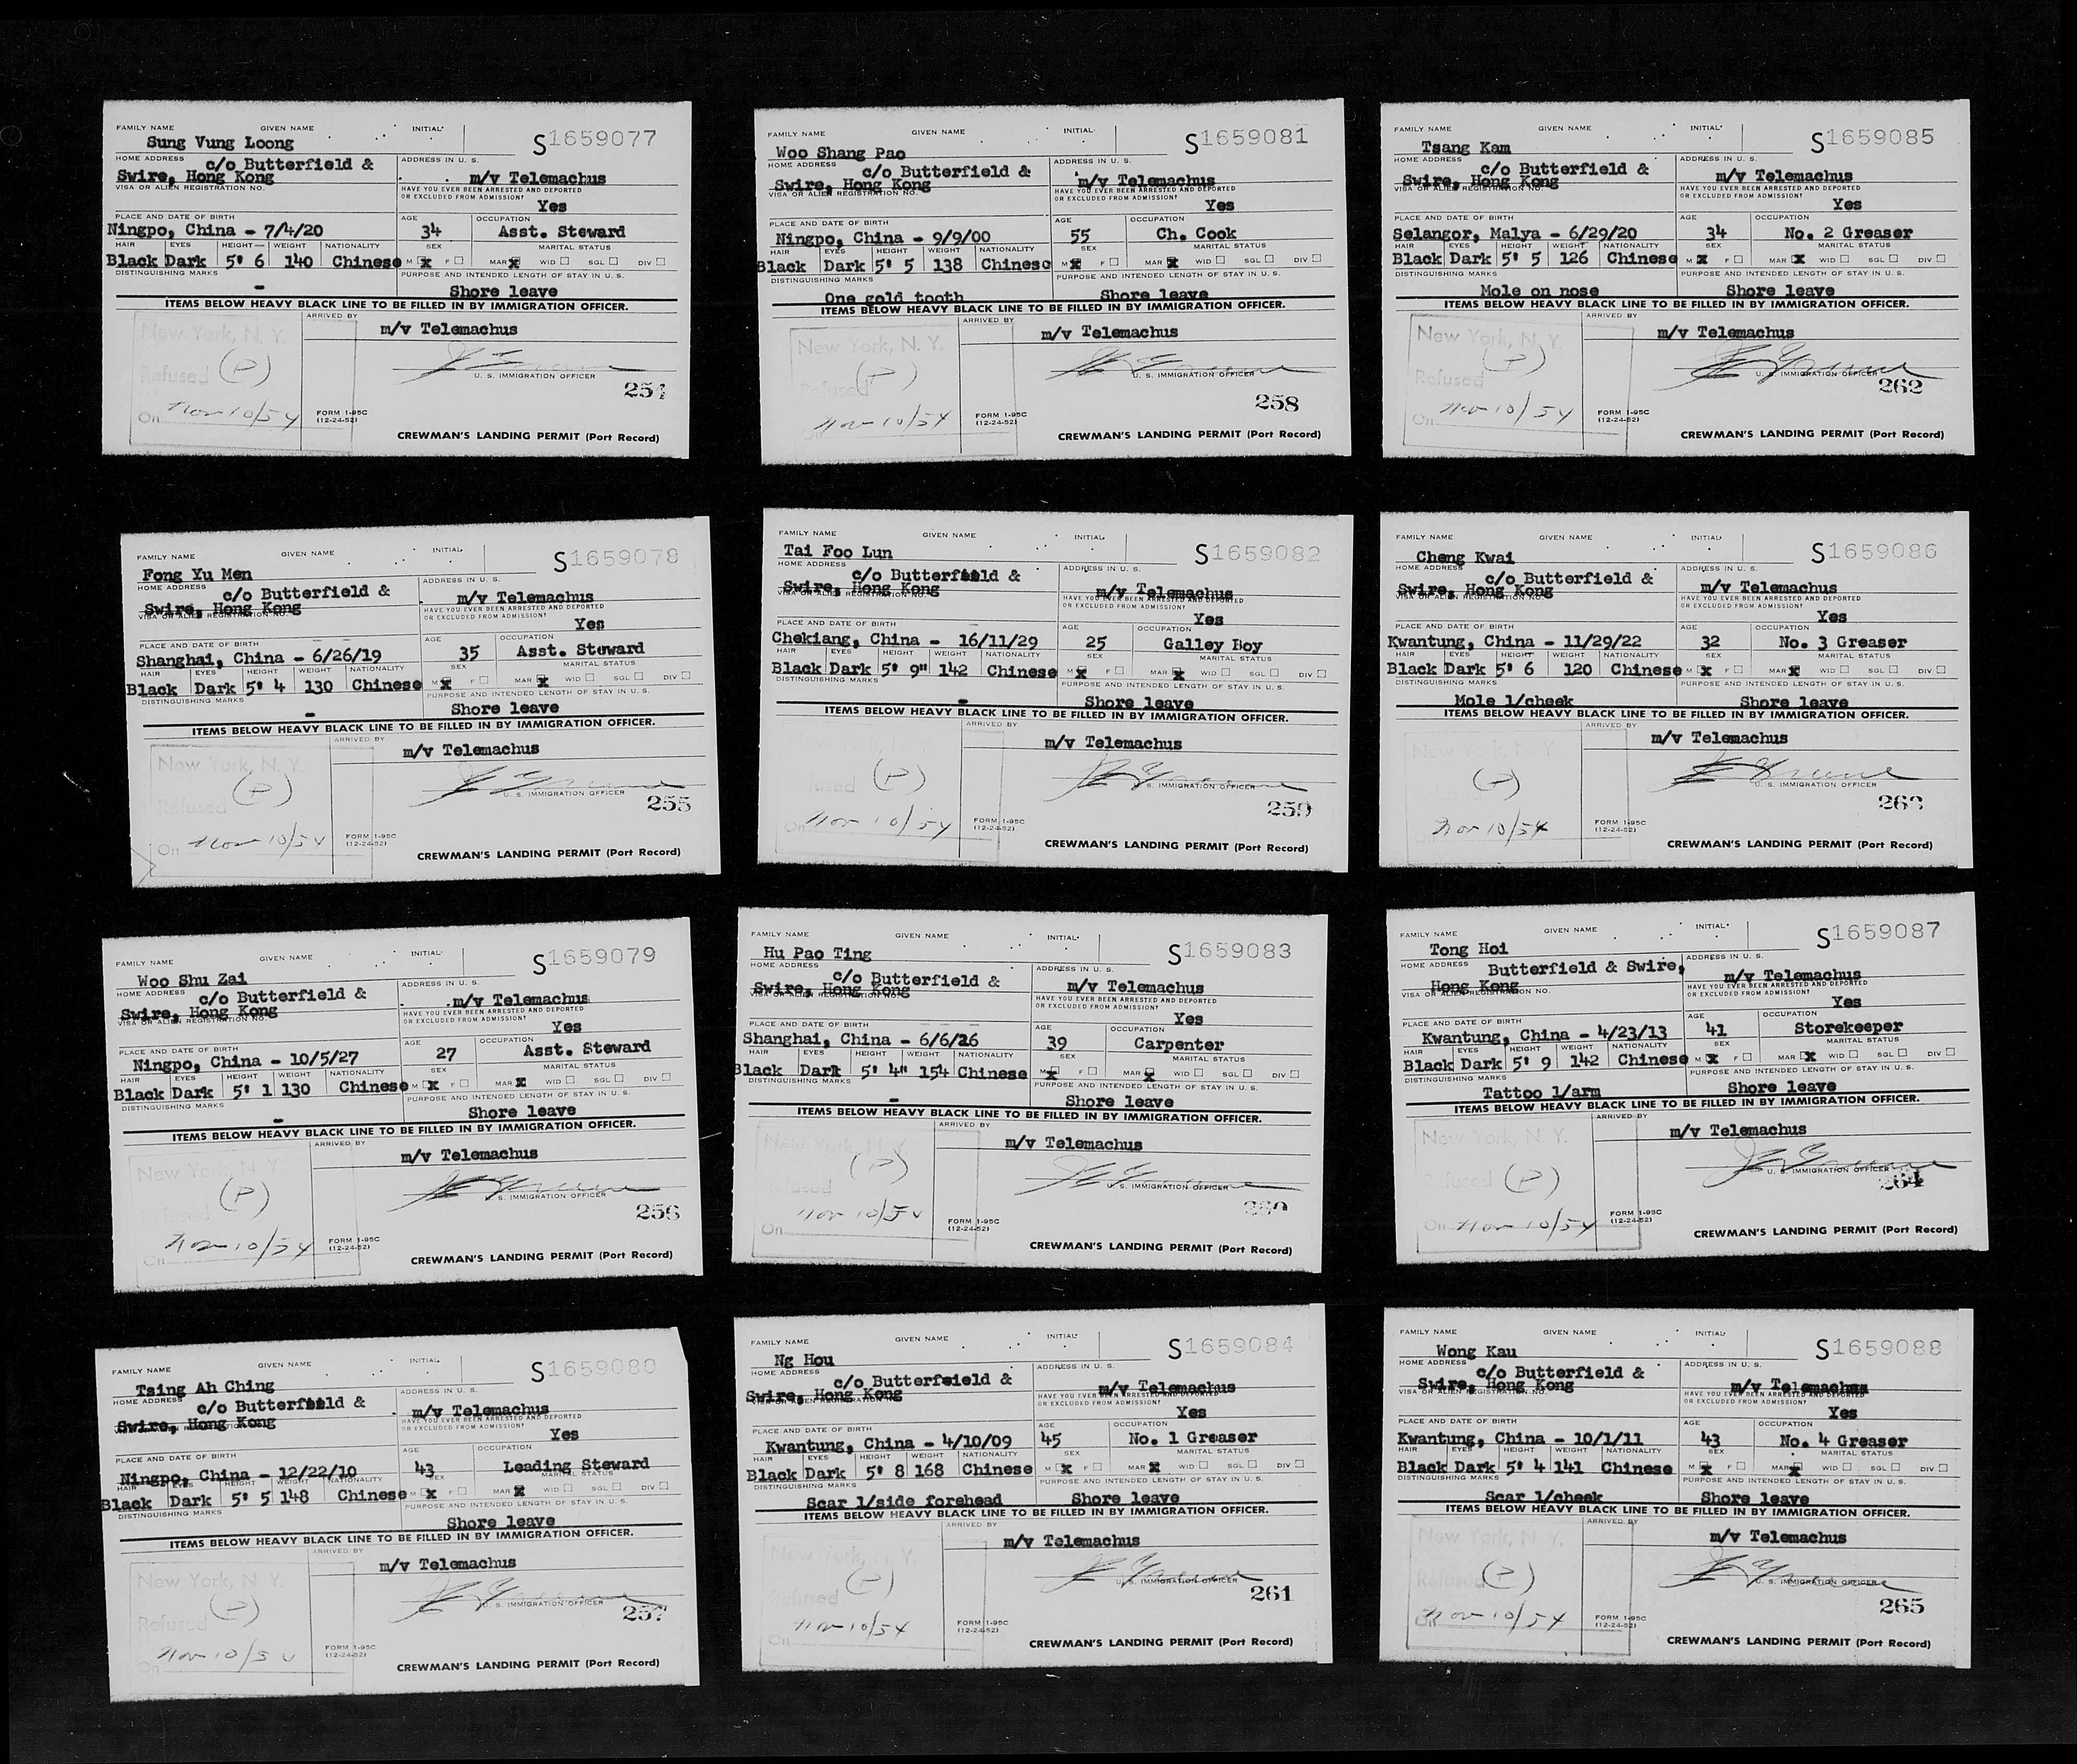 FAMILY NAME GIVEN NAME INITIAL
S1659077
Sung Vung Loong
HOME ADDRESS c/o Butterfield & ADDRESS IN U. S.
Swire, Hong Kong m/v Telemachus
VISA OR ALIEN REGISTRATION NO. HAVE YOU EVER BEEN ARRESTED AND DEPORTED
OR EXCLUDED FROM ADMISSION?
Yes
PLACE AND DATE OF BIRTH AGE OCCUPATION
Ningpo, China - 7/4/20 34 Asst. Steward
HAIR EYES HEIGHT WEIGHT NATIONALITY SEX MARITAL STATUS
Black Dark 5' 6 140 Chinese M X F MAR X WID SGL DIV
DISTINGUISHING MARKS PURPOSE AND INTENDED LENGTH OF STAY IN U. S.
- Shore leave
ITEMS BELOW HEAVY BLACK LINE TO BE FILLED IN BY IMMIGRATION OFFICER.
ARRIVED BY
m/v Telemachus
New York, N. Y.
(P)
Refused
U. S. IMMIGRATION OFFICER
On Nov 10/54
FORM I-95C
(12-24-52)
CREWMAN'S LANDING PERMIT (Port Record)
FAMILY NAME GIVEN NAME INITIAL
S1659081
Woo Shang Pao
HOME ADDRESS c/o Butterfield & ADDRESS IN U. S.
Swire, Hong Kong m/v Telemachus
VISA OR ALIEN REGISTRATION NO. HAVE YOU EVER BEEN ARRESTED AND DEPORTED
OR EXCLUDED FROM ADMISSION?
Yes
PLACE AND DATE OF BIRTH AGE OCCUPATION
Ningpo, China - 9/9/00 55 Ch. Cook
HAIR EYES HEIGHT WEIGHT NATIONALITY SEX MARITAL STATUS
Black Dark 5' 5 138 Chinese M X F MAR X WID SGL DIV
DISTINGUISHING MARKS PURPOSE AND INTENDED LENGTH OF STAY IN U. S.
One gold tooth Shore leave
ITEMS BELOW HEAVY BLACK LINE TO BE FILLED IN BY IMMIGRATION OFFICER.
ARRIVED BY
m/v Telemachus
New York, N. Y.
(P)
Refused
U. S. IMMIGRATION OFFICER
258
Nov 10/54
FORM I-95C
(12-24-52)
CREWMAN'S LANDING PERMIT (Port Record)
FAMILY NAME GIVEN NAME INITIAL
S1659085
Tsang Kam
HOME ADDRESS c/o Butterfield & ADDRESS IN U. S.
Swire, Hong Kong m/v Telemachus
VISA OR ALIEN REGISTRATION NO. HAVE YOU EVER BEEN ARRESTED AND DEPORTED
OR EXCLUDED FROM ADMISSION?
Yes
PLACE AND DATE OF BIRTH AGE OCCUPATION
Selangor, Malya - 6/29/20 34 No. 2 Greaser
HAIR EYES HEIGHT WEIGHT NATIONALITY SEX MARITAL STATUS
Black Dark 5' 5 126 Chinese M X F MAR X WID SGL DIV
DISTINGUISHING MARKS PURPOSE AND INTENDED LENGTH OF STAY IN U. S.
Mole on nose Shore leave
ITEMS BELOW HEAVY BLACK LINE TO BE FILLED IN BY IMMIGRATION OFFICER.
ARRIVED BY
m/v Telemachus
New York, N. Y.
(P)
Refused
U. S. IMMIGRATION OFFICER
262
On Nov 10/54
FORM I-95C
(12-24-52)
CREWMAN'S LANDING PERMIT (Port Record)
FAMILY NAME GIVEN NAME INITIAL
S1659078
Fong Yu Men
HOME ADDRESS c/o Butterfield & ADDRESS IN U. S.
Swire, Hong Kong m/v Telemachus
VISA OR ALIEN REGISTRATION NO. HAVE YOU EVER BEEN ARRESTED AND DEPORTED
OR EXCLUDED FROM ADMISSION?
Yes
PLACE AND DATE OF BIRTH AGE OCCUPATION
Shanghai, China - 6/26/19 35 Asst. Steward
HAIR EYES HEIGHT WEIGHT NATIONALITY SEX MARITAL STATUS
Black Dark 5' 4 130 Chinese M X F MAR X WID SGL DIV
DISTINGUISHING MARKS PURPOSE AND INTENDED LENGTH OF STAY IN U. S.
- Shore leave
ITEMS BELOW HEAVY BLACK LINE TO BE FILLED IN BY IMMIGRATION OFFICER.
ARRIVED BY
m/v Telemachus
New York, N. Y.
(P)
Refused
U. S. IMMIGRATION OFFICER
255
On Nov 10/54
FORM I-95C
(12-24-52)
CREWMAN'S LANDING PERMIT (Port Record)
FAMILY NAME GIVEN NAME INITIAL
S1659082
Tai Foo Lun
HOME ADDRESS c/o Butterfield & ADDRESS IN U. S.
Swire, Hong Kong m/v Telemachus
VISA OR ALIEN REGISTRATION NO. HAVE YOU EVER BEEN ARRESTED AND DEPORTED
OR EXCLUDED FROM ADMISSION?
Yes
PLACE AND DATE OF BIRTH AGE OCCUPATION
Chekiang, China - 16/11/29 25 Galley Boy
HAIR EYES HEIGHT WEIGHT NATIONALITY SEX MARITAL STATUS
Black Dark 5' 9" 142 Chinese M X F MAR X WID SGL DIV
DISTINGUISHING MARKS PURPOSE AND INTENDED LENGTH OF STAY IN U. S.
- Shore leave
ITEMS BELOW HEAVY BLACK LINE TO BE FILLED IN BY IMMIGRATION OFFICER.
ARRIVED BY
m/v Telemachus
(P)
Refused
U. S. IMMIGRATION OFFICER
259
On Nov 10/54
FORM I-95C
(12-24-52)
CREWMAN'S LANDING PERMIT (Port Record)
FAMILY NAME GIVEN NAME INITIAL
S1659086
Cheng Kwai
HOME ADDRESS c/o Butterfield & ADDRESS IN U. S.
Swire, Hong Kong m/v Telemachus
VISA OR ALIEN REGISTRATION NO. HAVE YOU EVER BEEN ARRESTED AND DEPORTED
OR EXCLUDED FROM ADMISSION?
Yes
PLACE AND DATE OF BIRTH AGE OCCUPATION
Kwantung, China - 11/29/22 32 No. 3 Greaser
HAIR EYES HEIGHT WEIGHT NATIONALITY SEX MARITAL STATUS
Black Dark 5' 6 120 Chinese M X F MAR X WID SGL DIV
DISTINGUISHING MARKS PURPOSE AND INTENDED LENGTH OF STAY IN U. S.
Mole l/cheek Shore leave
ITEMS BELOW HEAVY BLACK LINE TO BE FILLED IN BY IMMIGRATION OFFICER.
ARRIVED BY
m/v Telemachus
New York, N. Y.
(P)
U. S. IMMIGRATION OFFICER
263
Nov 10/54
FORM I-95C
(12-24-52)
CREWMAN'S LANDING PERMIT (Port Record)
FAMILY NAME GIVEN NAME INITIAL
S1659079
Woo Shu Zai
HOME ADDRESS c/o Butterfield & ADDRESS IN U. S.
Swire, Hong Kong m/v Telemachus
VISA OR ALIEN REGISTRATION NO. HAVE YOU EVER BEEN ARRESTED AND DEPORTED
OR EXCLUDED FROM ADMISSION?
Yes
PLACE AND DATE OF BIRTH AGE OCCUPATION
Ningpo, China - 10/5/27 27 Asst. Steward
HAIR EYES HEIGHT WEIGHT NATIONALITY SEX MARITAL STATUS
Black Dark 5' 1 130 Chinese M X F MAR X WID SGL DIV
DISTINGUISHING MARKS PURPOSE AND INTENDED LENGTH OF STAY IN U. S.
- Shore leave
ITEMS BELOW HEAVY BLACK LINE TO BE FILLED IN BY IMMIGRATION OFFICER.
ARRIVED BY
m/v Telemachus
New York, N. Y.
(P)
Refused
U. S. IMMIGRATION OFFICER
256
On Nov 10/54
FORM I-95C
(12-24-52)
CREWMAN'S LANDING PERMIT (Port Record)
FAMILY NAME GIVEN NAME INITIAL
S1659083
Hu Pao Ting
HOME ADDRESS c/o Butterfield & ADDRESS IN U. S.
Swire, Hong Kong m/v Telemachus
VISA OR ALIEN REGISTRATION NO. HAVE YOU EVER BEEN ARRESTED AND DEPORTED
OR EXCLUDED FROM ADMISSION?
Yes
PLACE AND DATE OF BIRTH AGE OCCUPATION
Shanghai, China - 39 Carpenter
HAIR EYES HEIGHT WEIGHT NATIONALITY SEX MARITAL STATUS
Black Dark 5' 4" 154 Chinese M X F MAR X WID SGL DIV
DISTINGUISHING MARKS PURPOSE AND INTENDED LENGTH OF STAY IN U. S.
- Shore leave
ITEMS BELOW HEAVY BLACK LINE TO BE FILLED IN BY IMMIGRATION OFFICER.
ARRIVED BY
m/v Telemachus
New York, N. Y.
(P)
Refused
U. S. IMMIGRATION OFFICER
260
On Nov 10/54
FORM I-95C
(12-24-52)
CREWMAN'S LANDING PERMIT (Port Record)
FAMILY NAME GIVEN NAME INITIAL
S1659087
Tong Hoi
HOME ADDRESS Butterfield & Swire, ADDRESS IN U. S.
Hong Kong m/v Telemachus
VISA OR ALIEN REGISTRATION NO. HAVE YOU EVER BEEN ARRESTED AND DEPORTED
OR EXCLUDED FROM ADMISSION?
Yes
PLACE AND DATE OF BIRTH AGE OCCUPATION
Kwantung, China - 4/23/13 41 Storekeeper
HAIR EYES HEIGHT WEIGHT NATIONALITY SEX MARITAL STATUS
Black Dark 5' 9 142 Chinese M X F MAR X WID SGL DIV
DISTINGUISHING MARKS PURPOSE AND INTENDED LENGTH OF STAY IN U. S.
Tattoo l/arm Shore leave
ITEMS BELOW HEAVY BLACK LINE TO BE FILLED IN BY IMMIGRATION OFFICER.
ARRIVED BY
m/v Telemachus
New York, N. Y.
(P)
Refused
U. S. IMMIGRATION OFFICER
264
On Nov 10/54
FORM I-95C
(12-24-52)
CREWMAN'S LANDING PERMIT (Port Record)
FAMILY NAME GIVEN NAME INITIAL
S1659080
Tsing Ah Ching
HOME ADDRESS c/o Butterfield & ADDRESS IN U. S.
Swire, Hong Kong m/v Telemachus
VISA OR ALIEN REGISTRATION NO. HAVE YOU EVER BEEN ARRESTED AND DEPORTED
OR EXCLUDED FROM ADMISSION?
Yes
PLACE AND DATE OF BIRTH AGE OCCUPATION
Ningpo, China - 12/22/10 43 Leading Steward
HAIR EYES HEIGHT WEIGHT NATIONALITY SEX MARITAL STATUS
Black Dark 5' 5 148 Chinese M X F MAR X WID SGL DIV
DISTINGUISHING MARKS PURPOSE AND INTENDED LENGTH OF STAY IN U. S.
Shore leave
ITEMS BELOW HEAVY BLACK LINE TO BE FILLED IN BY IMMIGRATION OFFICER.
ARRIVED BY
m/v Telemachus
New York, N. Y.
(P)
Refused
U. S. IMMIGRATION OFFICER
257
On Nov 10/54
FORM I-95C
(12-24-52)
CREWMAN'S LANDING PERMIT (Port Record)
FAMILY NAME GIVEN NAME INITIAL
S1659084
Ng Hou
HOME ADDRESS c/o Butterfeield & ADDRESS IN U. S.
Swire, Hong Kong m/v Telemachus
VISA OR ALIEN REGISTRATION NO. HAVE YOU EVER BEEN ARRESTED AND DEPORTED
OR EXCLUDED FROM ADMISSION?
Yes
PLACE AND DATE OF BIRTH AGE OCCUPATION
Kwantung, China - 4/10/09 45 No. 1 Greaser
HAIR EYES HEIGHT WEIGHT NATIONALITY SEX MARITAL STATUS
Black Dark 5' 8 168 Chinese M X F MAR X WID SGL DIV
DISTINGUISHING MARKS PURPOSE AND INTENDED LENGTH OF STAY IN U. S.
Scar l/side forehead Shore leave
ITEMS BELOW HEAVY BLACK LINE TO BE FILLED IN BY IMMIGRATION OFFICER.
ARRIVED BY
m/v Telemachus
New York, N. Y.
(P)
Refused
U. S. IMMIGRATION OFFICER
261
On Nov 10/54
FORM I-95C
(12-24-52)
CREWMAN'S LANDING PERMIT (Port Record)
FAMILY NAME GIVEN NAME INITIAL
S1659088
Wong Kau
HOME ADDRESS c/o Butterfield & ADDRESS IN U. S.
Swire, Hong Kong m/v Telemachus
VISA OR ALIEN REGISTRATION NO. HAVE YOU EVER BEEN ARRESTED AND DEPORTED
OR EXCLUDED FROM ADMISSION?
Yes
PLACE AND DATE OF BIRTH AGE OCCUPATION
Kwantung, China - 10/1/11 43 No. 4 Greaser
HAIR EYES HEIGHT WEIGHT NATIONALITY SEX MARITAL STATUS
Black Dark 5' 4 141 Chinese M X F MAR X WID SGL DIV
DISTINGUISHING MARKS PURPOSE AND INTENDED LENGTH OF STAY IN U. S.
Scar l/cheek Shore leave
ITEMS BELOW HEAVY BLACK LINE TO BE FILLED IN BY IMMIGRATION OFFICER.
ARRIVED BY
m/v Telemachus
New York, N. Y.
(P)
Refused
U. S. IMMIGRATION OFFICER
265
On Nov 10/54
FORM I-95C
(12-24-52)
CREWMAN'S LANDING PERMIT (Port Record)